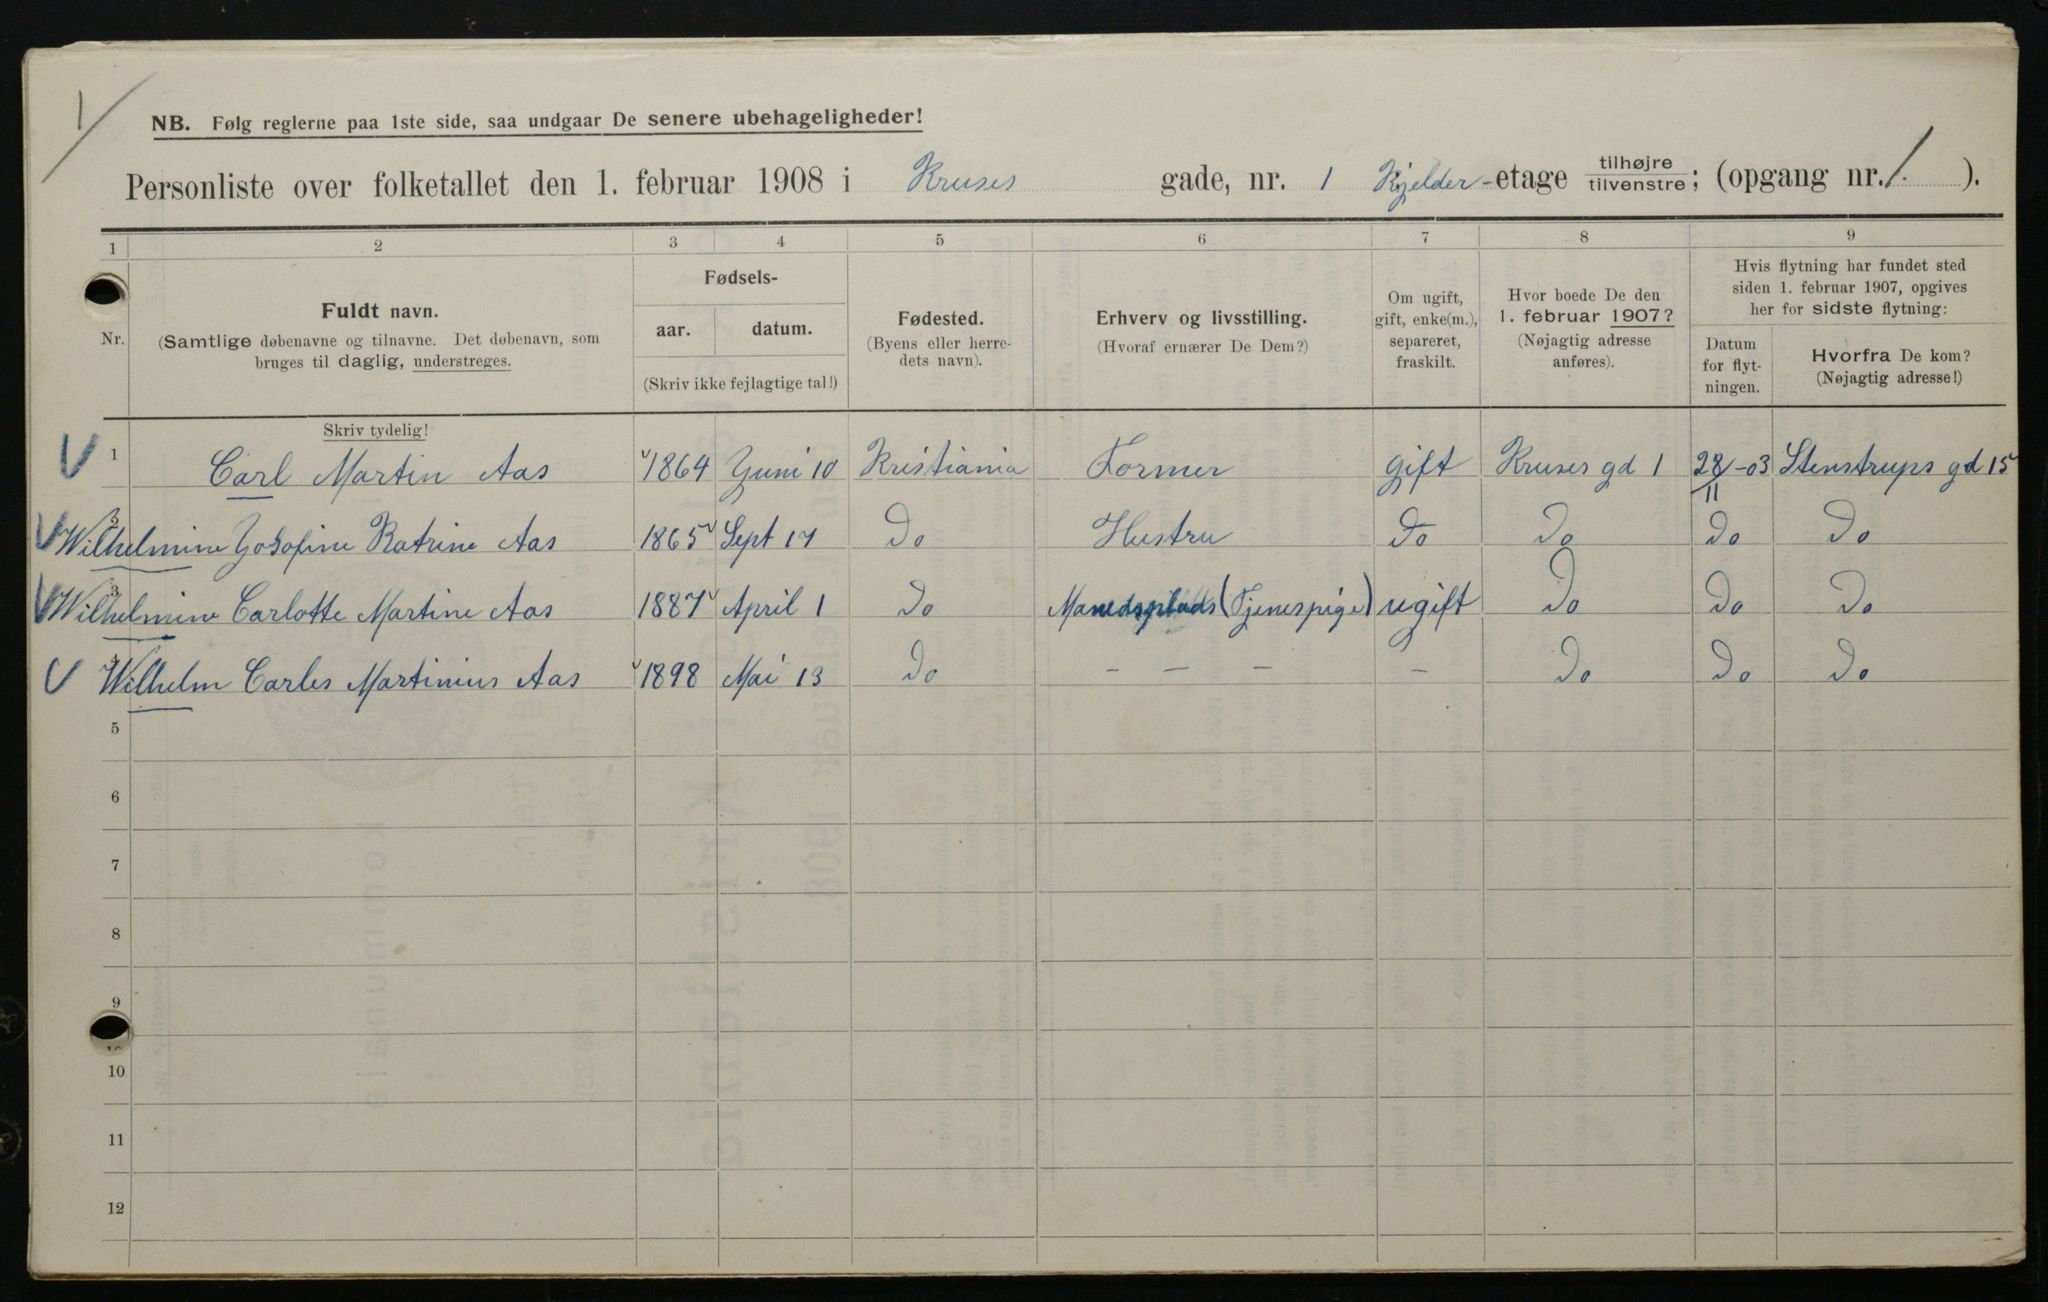 1
NB. Følg reglerne paa 1ste side, saa undgaar De senere ubehageligheder!
Personliste over folketallet den 1. februar 1908 i Kruses gade, nr. 1 Kjelder-etage tilhøjre tilvenstre; (opgang nr. 1. ).
1 2 3 4 5 6 7 8 9
Nr.
Fuldt navn.
(Samtlige døbenavne og tilnavne. Det døbenavn, som
bruges til daglig, understreges.
Fødsels-
aar. datum.
(Skriv ikke fejlagtige tal!)
Fødested.
(Byens eller herre-
dets navn).
Erhverv og livsstilling.
(Hvoraf ernærer De Dem?)
Om ugift,
gift, enke(m.),
separeret,
fraskilt.
Hvor boede De den
1. februar 1907?
(Nøjagtig adresse
anføres).
Hvis flytning har fundet sted
siden 1. februar 1907, opgives
her for sidste flytning:
Datum
for flyt-
ningen.
Hvorfra De kom?
(Nøjagtig adresse!)
Skriv tydelig!
1 Carl Martin Aas 1864 Juni 10 Kristiania Former gift Kruses gd 1 28/11-03 Stenstrups gd 15
2 Wilhelmine Josofine Katrine Aas 1865 Sept 17 Do Hustru Do Do Do Do
3 Wilhelmine Carlotte Martine Aas 1887 April 1 Do Manedsplads (Tjenespige) ugift Do Do Do
4 Wilhelm Carles Martinius Aas 1898 Mai 13 Do – – – – Do Do Do
5
6
7
8
9
10
11
12